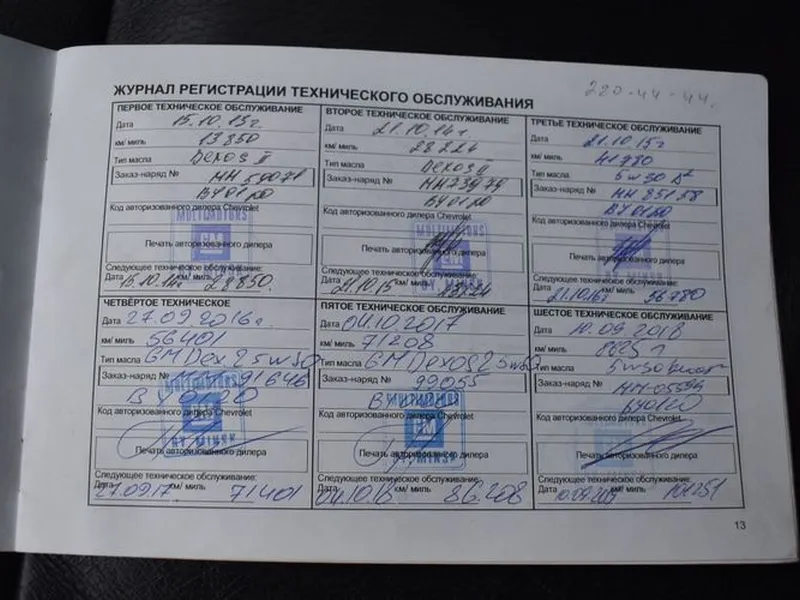 ЖУРНАЛ РЕГИСТРАЦИИ ТЕХНИЧЕСКОГО ОБСЛУЖИВАНИЯ
220-44-44.
ПЕРВОЕ ТЕХНИЧЕСКОЕ ОБСЛУЖИВАНИЕ
Дата 15.10.13г
км/ миль 13850
Тип масла Dexos II
Заказ-наряд № НН 59071
BY0120
Код авторизованного дилера Chevrolet
MULTIMOTORS
GM
Печать авторизованного дилера
Следующее техническое обслуживание:
Дата 15.10.14г км/ миль 28850.
ВТОРОЕ ТЕХНИЧЕСКОЕ ОБСЛУЖИВАНИЕ
Дата 21.10.14г
км/ миль 28224
Тип масла Dexos II
Заказ-наряд № НН73979
BY0120
Код авторизованного дилера Chevrolet
MULTIMOTORS
Печать авторизованного дилера
BY MINSK
Следующее техническое обслуживание:
Дата 21.10.15 км/ миль 43224
ТРЕТЬЕ ТЕХНИЧЕСКОЕ ОБСЛУЖИВАНИЕ
Дата 21.10.15г
км/ миль 41780
Тип масла 5w30 D2
Заказ-наряд № НН 85158
BY0120
Код авторизованного дилера Chevrolet
Печать авторизованного дилера
Следующее техническое обслуживание:
Дата 21.10.16г км/ миль 56780
ЧЕТВЁРТОЕ ТЕХНИЧЕСКОЕ
Дата 27.09.2016г.
км/ миль 56401
Тип масла GM Dex2 5w30
Заказ-наряд № 91646
BY0120
Код авторизованного дилера Chevrolet
MULTIMOTORS
GM
BY MINSK
Печать авторизованного дилера
Следующее техническое обслуживание:
Дата 27.09.17. км/ миль 71401
ПЯТОЕ ТЕХНИЧЕСКОЕ ОБСЛУЖИВАНИЕ
Дата 04.10.2017
км/ миль 71208
Тип масла GM Dexos2 5w30
Заказ-наряд № 99055
BY0120
Код авторизованного дилера Chevrolet
GM
Печать авторизованного дилера
BY MINSK
Следующее техническое обслуживание:
Дата 04.10.18 км/ миль 86.208
ШЕСТОЕ ТЕХНИЧЕСКОЕ ОБСЛУЖИВАНИЕ
Дата 10.09.2018
км/ миль 86251
Тип масла 5w30
Заказ-наряд №
BY0120
Код авторизованного дилера Chevrolet
Печать авторизованного дилера
Следующее техническое обслуживание:
Дата км/ миль 101251
13